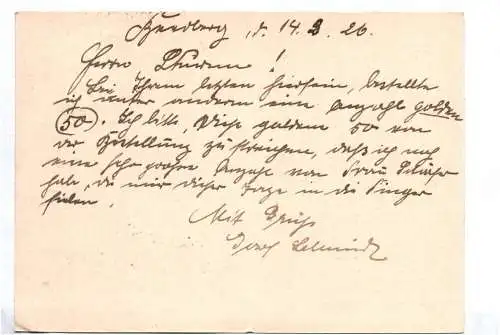 d. 14. 3. 26.
Herrn !
Bei Ihrem letzten Hiersein, bestellte
ich unter anderem eine Anzahl golden
(50). Ich bitte, diese goldenen 50 von
der Bestellung zu streichen, daß ich noch
eine sehr große Anzahl von Frau
habe, die mir dieser Tage in die Finger
fielen.
Mit Gruß
Josef Schmidt